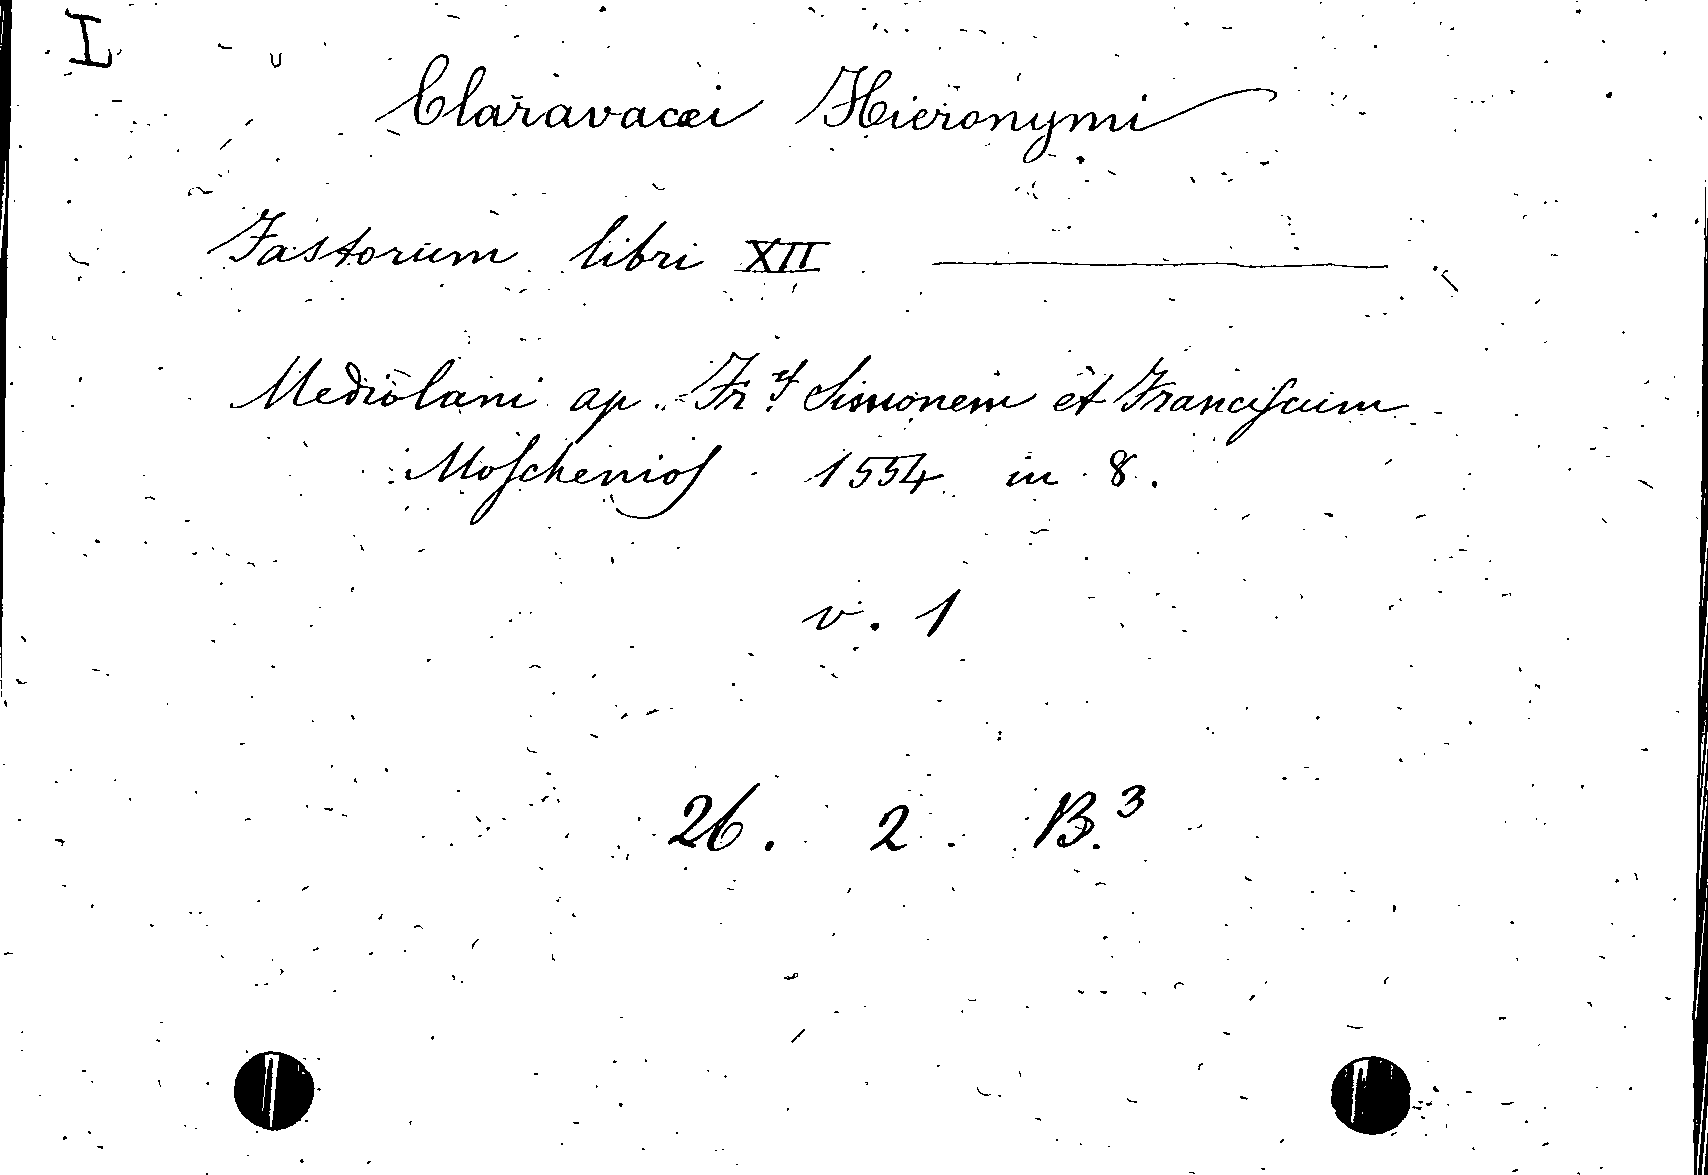 I
Claravacæi Hieronymi
Fastorum libri XII
Mediolani ap. Simonem et Franciſcum
Moſchenioſ 1554 in 8.
v. 1
26. 2 B.3